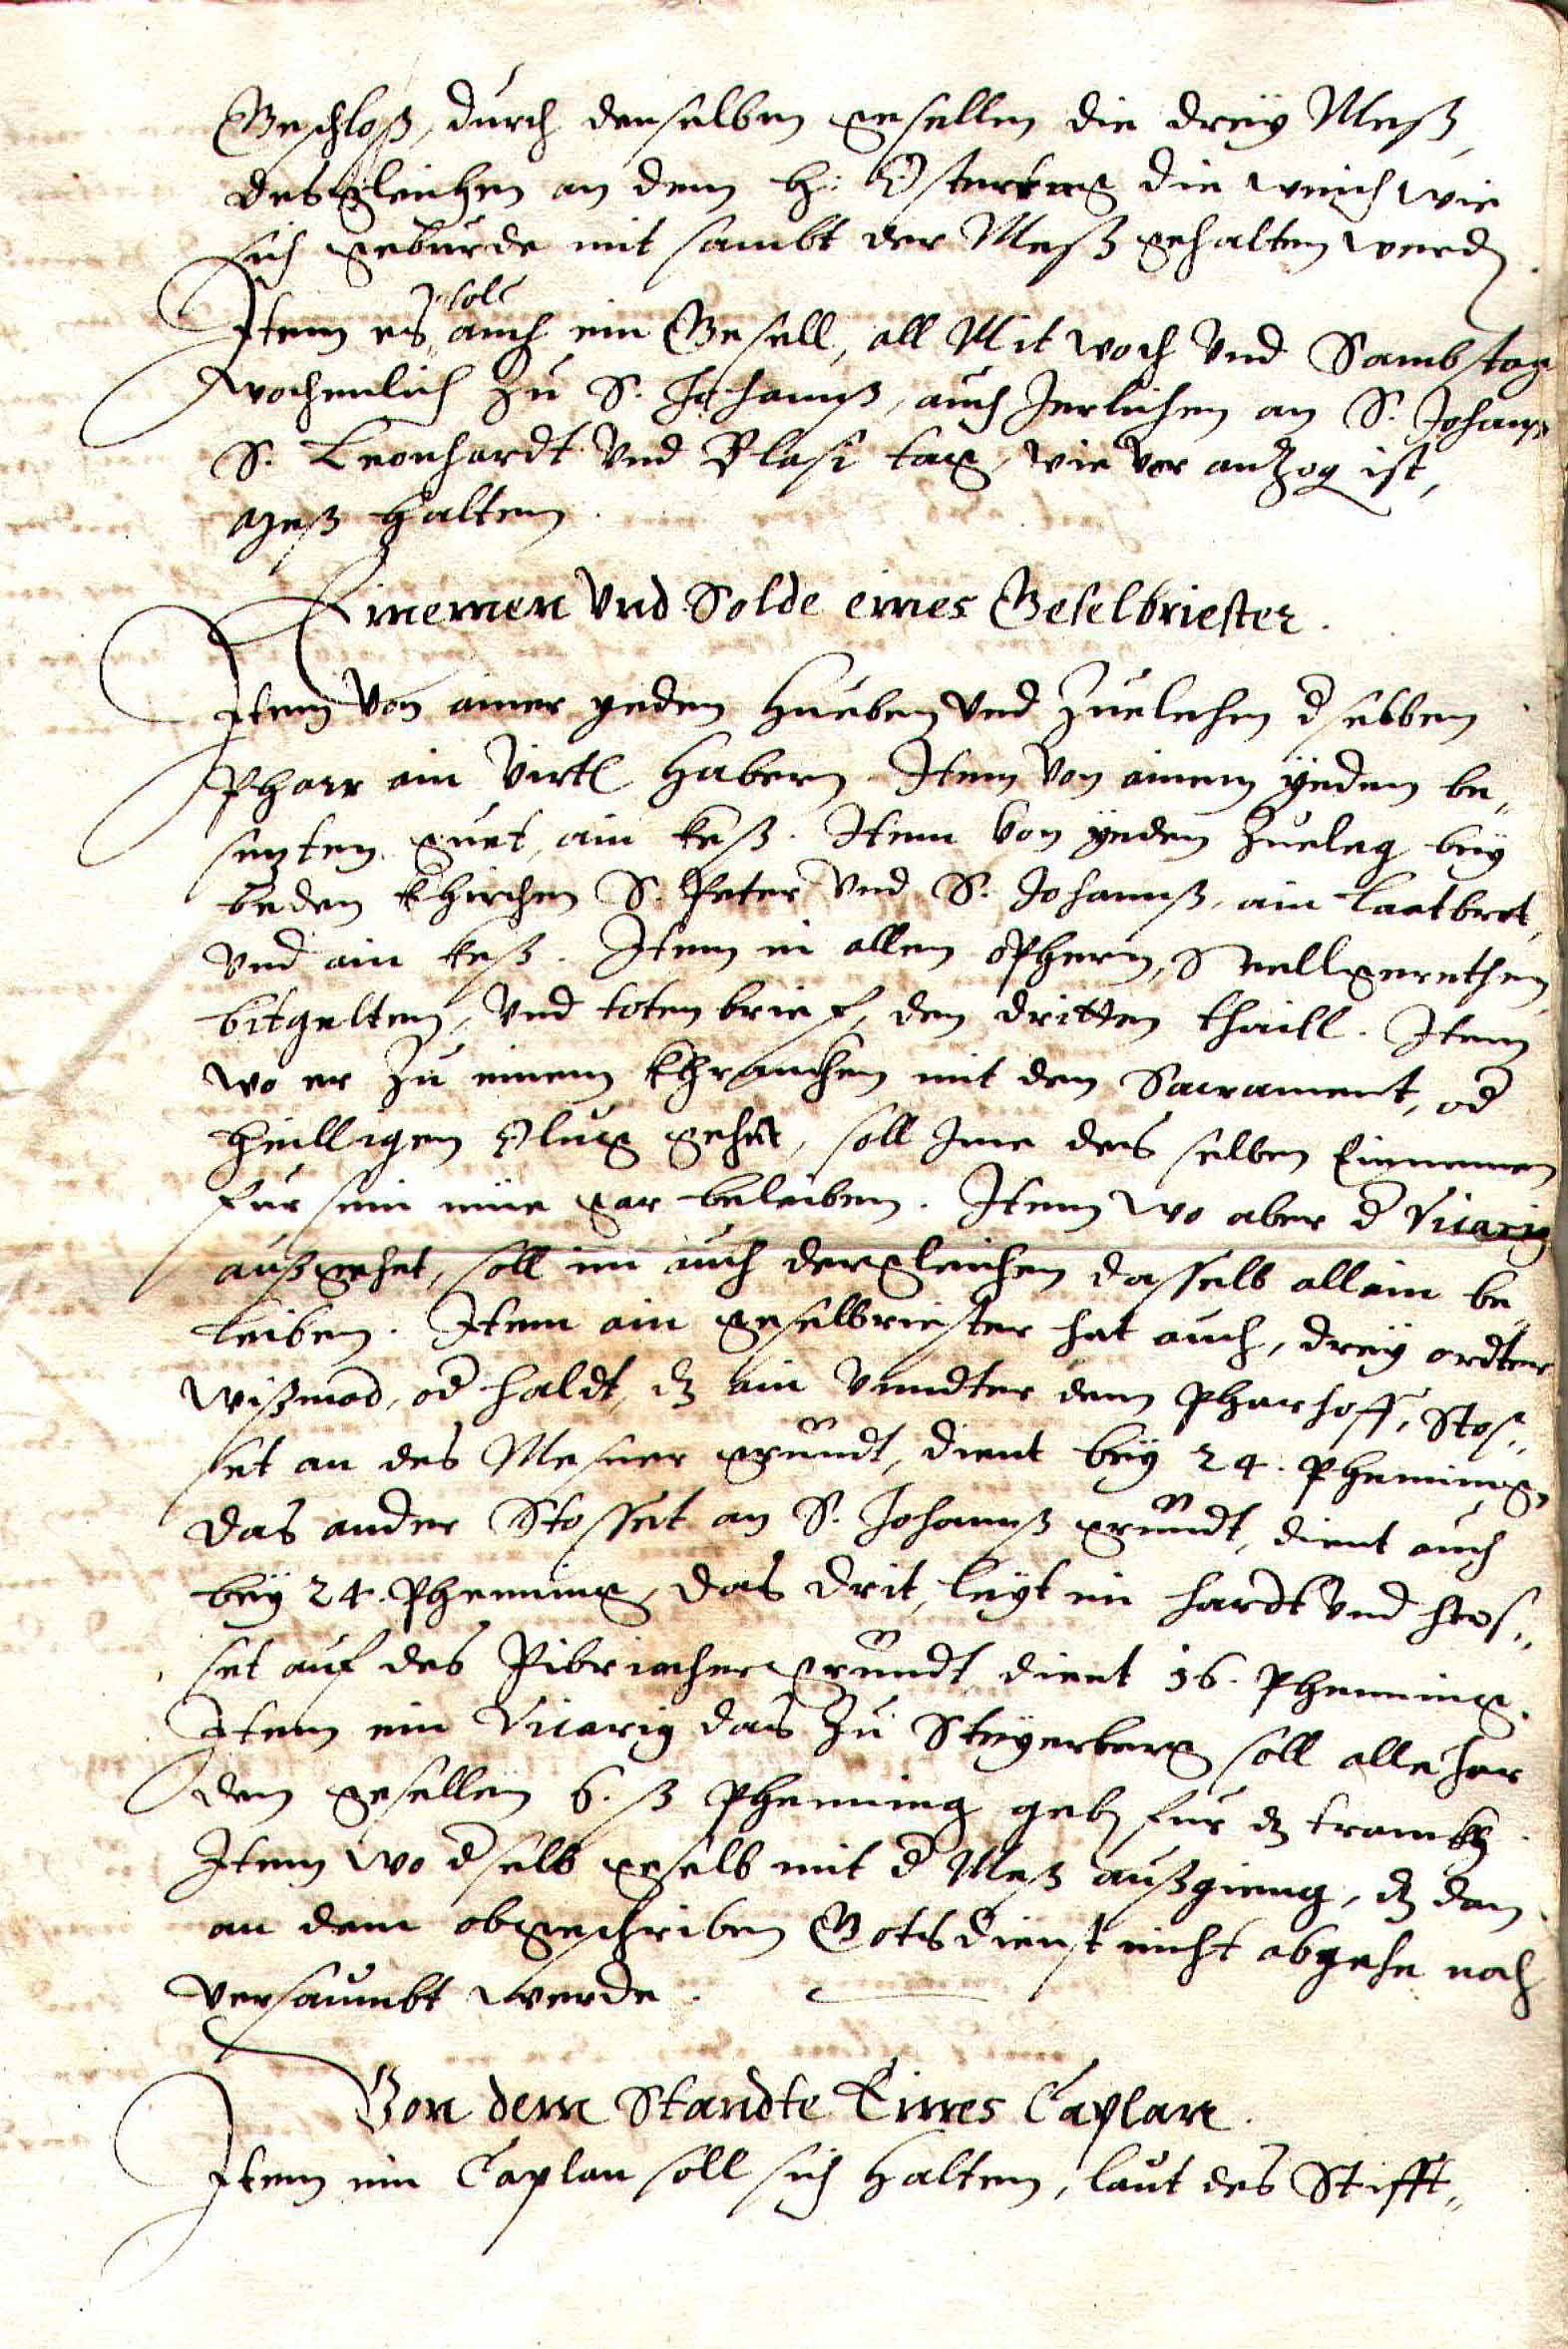 Geschloß, durch denselben gesellen die dreÿ Meß,
desgleichen an dem h: Ostertag die weich wie
sich gebürde mit sambt der Meß gehalten werdn.
Item es soll auch ein Gesell, all Mitwoch vnd Sambstag
wochenlich zu S. Johannß, auch Jerlichen an S. Johanß
S. Leonhardt vnd Blasi tag, wie vor anzog ist,
meß halten.
Einemen vnd Solde eines Geselbriester.
Item von ainer yeden Hueben vnd Zuelehen dselben
Pharr ain virtl Habern. Item von ainem ÿeden be„
setzten guet, ain keß. Item von ÿeden Zueleg beÿ
beden Khirchen S. Peter vnd S. Johannß, ain laibbrot,
vnd ain keß. Item in allen ophern, Seellgerethen,
bitgelten, vnd totenbrief, den dritten thaill. Item
wo er zu einem Khranckhen mit dem Sacrament, od
heilligen Ölung gehet, soll Ime des selben Einnemen
für sein müe gar beleiben. Item wo aber d Vicarÿ
außgehet, soll im auch dergleichen dasselb allein be„
leiben. Item ain geselbriester hat auch, dreÿ ordter
wißmad, od haldt, dz ain vnndter dem Pharhoff, Stos„
set an des Mesner grundt, dient beÿ 24. Phening,
das ander Stosset an S. Johannß grundt, dient auch
beÿ 24. Phening, das drit, leÿt im hardt vnd stos„
set auf des Pibriacher grundt dient 16. Phenning.
Item ein Vicarÿ das zu Steÿerberg soll alle Jar
dem gesellen 6. ß Phenning gebn für dz tranckh.
Item wo dselb gesell mit d Meß außgieng, dz dan
an dem obgeschriben Gotsdienst nicht abgehe noch
versaumbt werde.
Von dem Standte Eines Caplan.
Item ein Caplan soll sich halten, laut des Stifft„